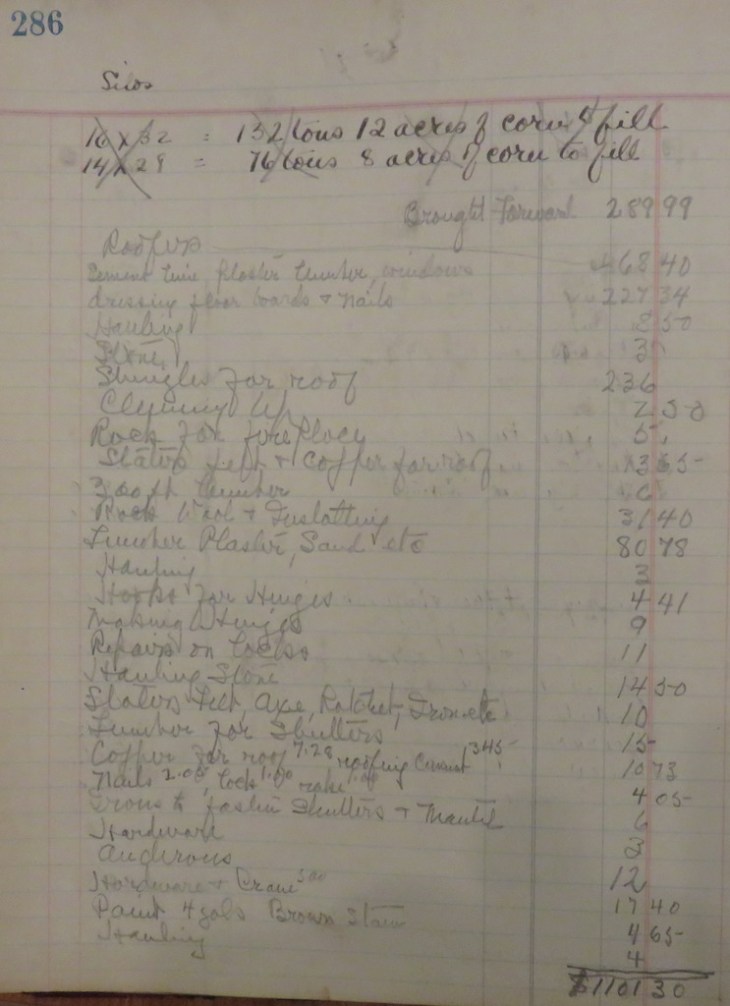 286
Silos
16 x 32 = 132 tons 12 acres of corn to fill
14 x 29 = 76 tons 8 acres of corn to fill
Brought Forward 289 99
Roofers
Cement Lime Plaster Lumber, windows 468 40
dressing floor boards + nails 227 34
Hauling 2 50
Stone 3
Shingles for roof 236
Cleaning Up 2 50
Rock for fire place 5
Slaters felt + Copper for roof 3 65
300 ft Lumber 6
Rock Wool + 31 40
Lumber Plaster, Sand etc 80 78
Hauling 3
Hooks for Hinges 4 41
Making Hinges 9
Repairs on Locks 11
Hauling Stone
Slaters Felt, Axe, Ratchet, Iron etc 14 50
Lumber for Shutters 10
Copper for roof 7.28 roofing Cement 345 15
Nails 2.05, lock 1.00 rake 1.00 10 73
Irons to fasten Shutters + Mantel 4 05
Hardware 6
Andirons 3
Hardware + Crane 12
Paint 4 gals Brown Stain 17 40
Hauling 4 65
4
$1101 30